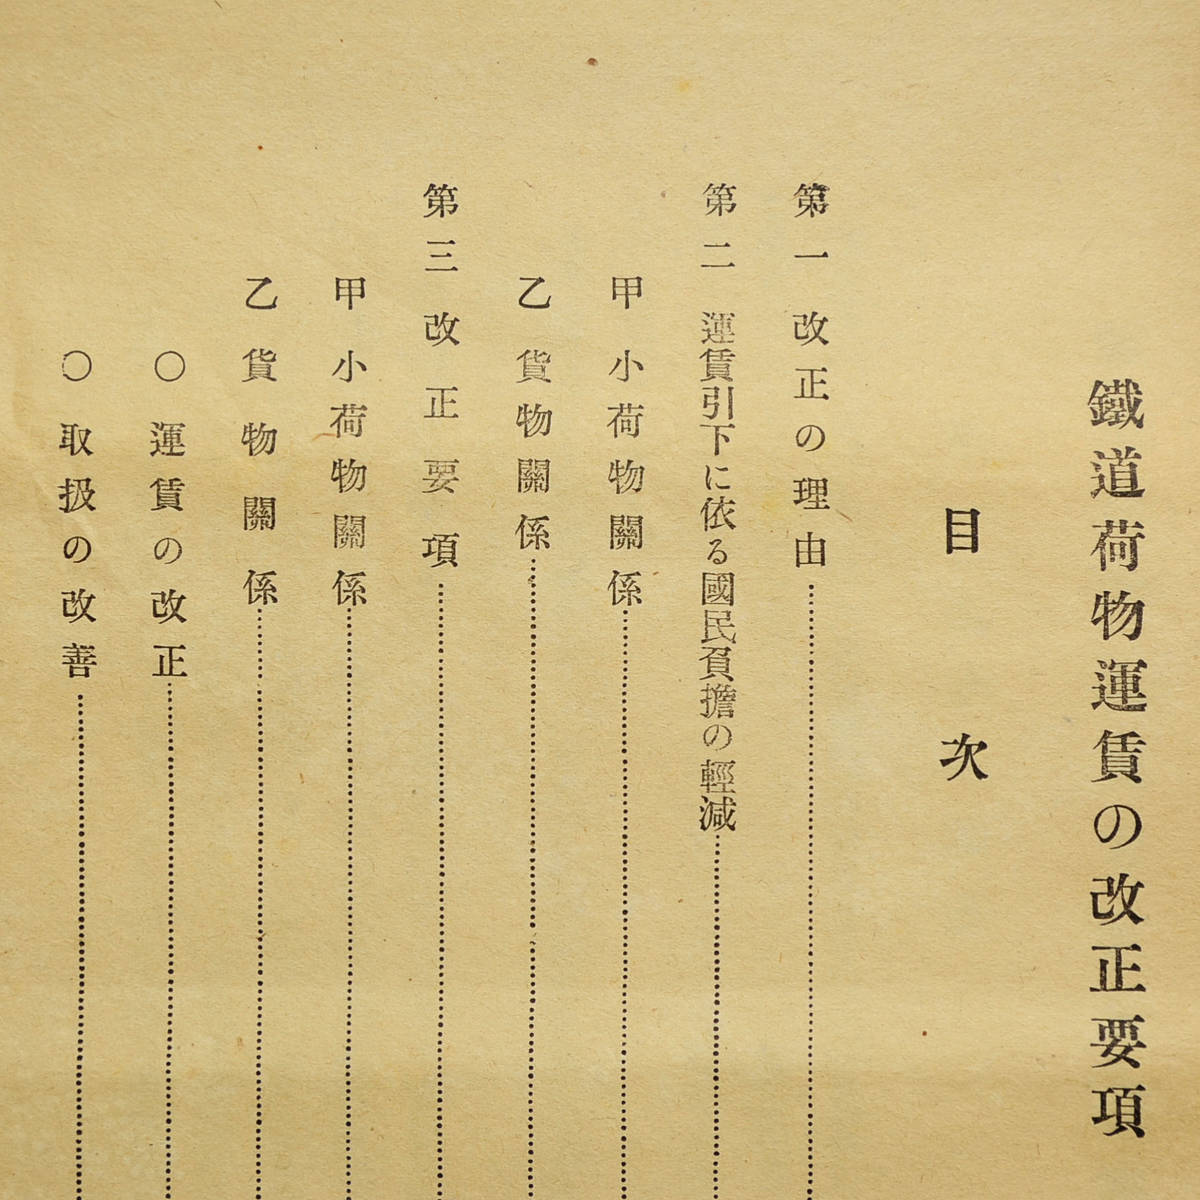 鐵道荷物運賃の改正要項
目次
第一 改正の理由
第二 運賃引下に依る國民負擔の輕減
甲 小荷物關係
乙 貨物關係
第三 改正要項
甲 小荷物關係
乙 貨物關係
○ 運賃の改正
○ 取扱の改善